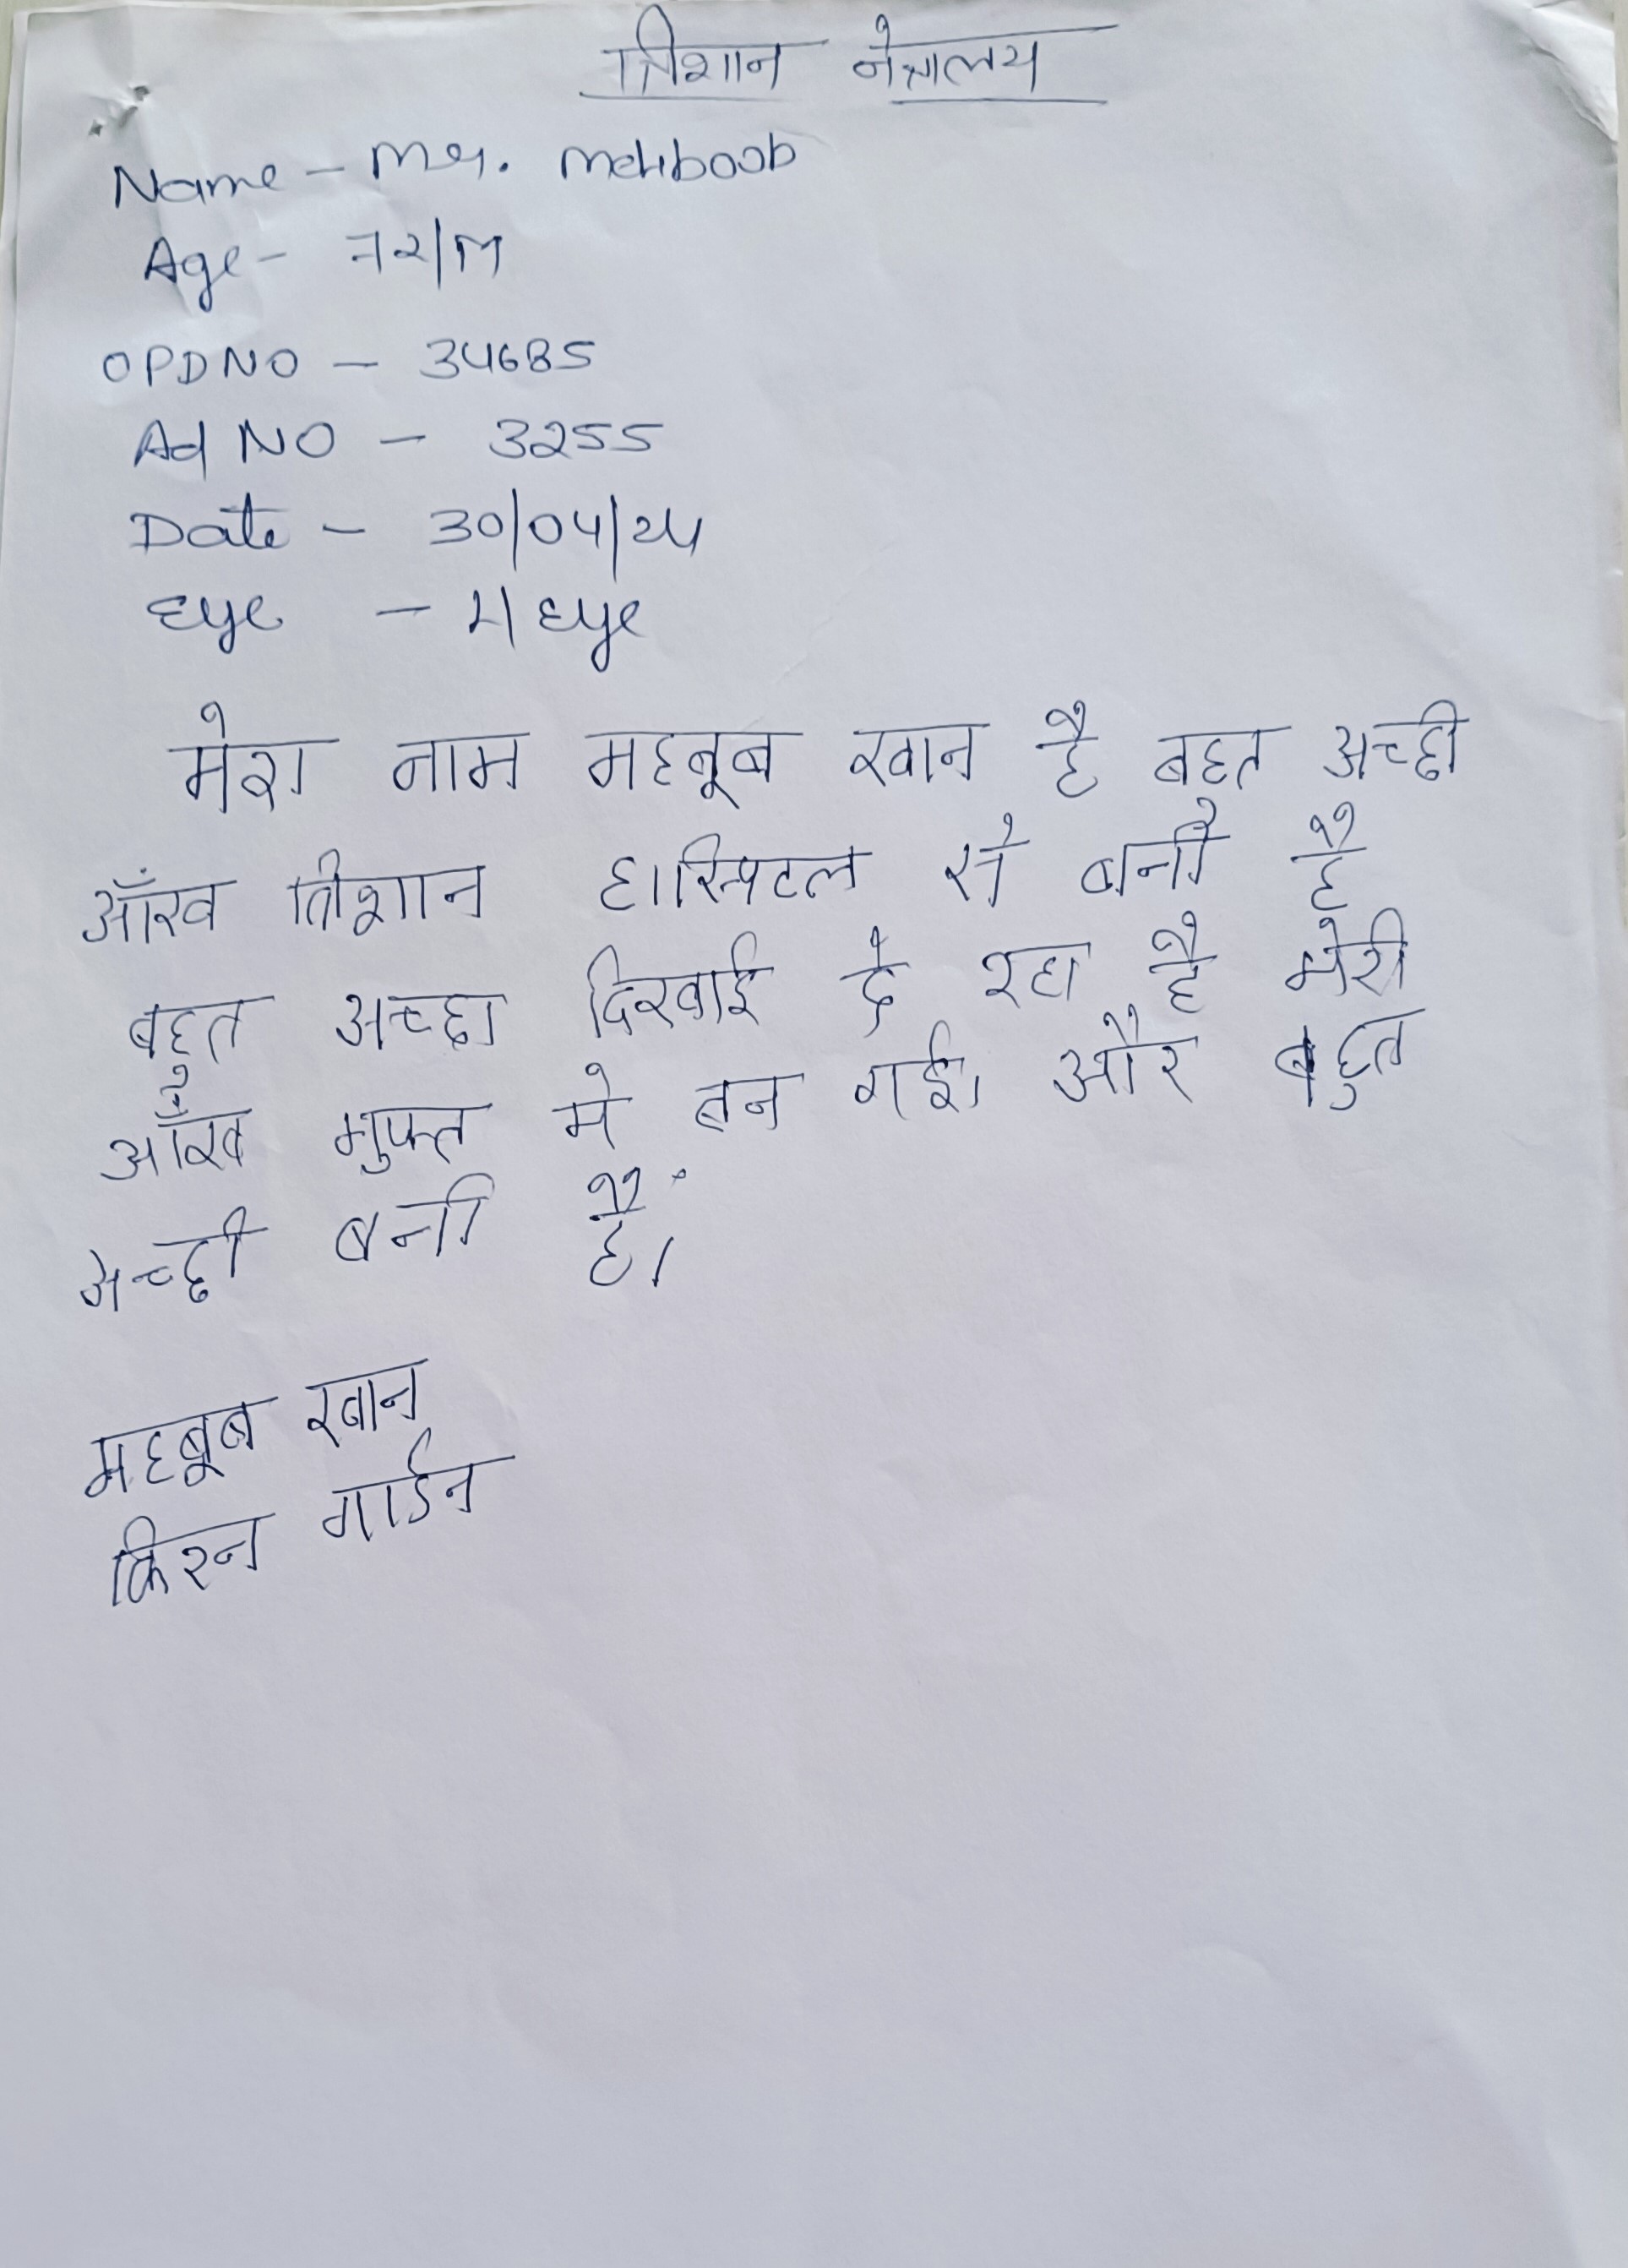 त्रिशान नेत्रालय
Name - Mr. Mehboob
Age - 72/M
OPD NO - 34685
Ad NO - 3255
Date - 30/04/24
Eye - Eye
मेरा नाम महबूब खान है बहुत अच्छी
आँख त्रिशान हास्पिटल से बनी है
बहुत अच्छा दिखाई दे रहा है मेरी
आँख मुफ्त मे बन गई। और बहुत
अच्छी बनी है।
महबूब खान
किरन गार्डन